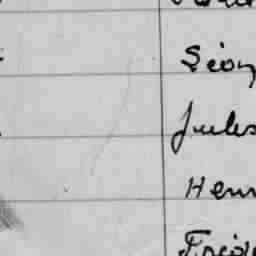 Léon
Jules
Henr
Fréd